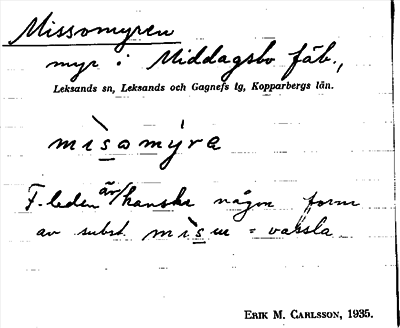 Missomyren
myr i Middagsbo fäb.,
Leksands sn, Leksands och Gagnefs tg, Kopparbergs län.
mìsomýra
F-leden är kanske någon form
av subst. = vassla
ERIK M. CARLSSON, 1935.